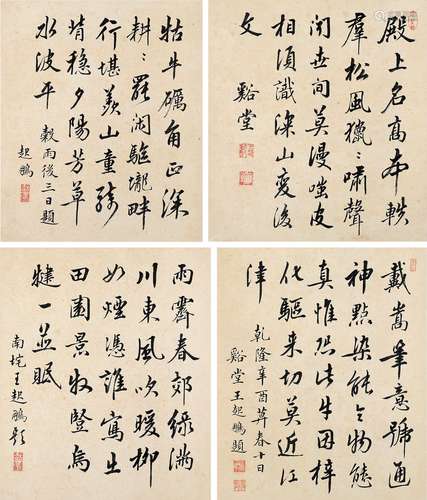 殿上名高本軼
羣松風獵〻嘯聲
聞世間莫漫嗤皮
相須識梁山変後
文
谿堂
牯牛礪角正深
耕〻罷閒驅壠畔
行堪羨山童騎
背穩夕陽芳草
水波平
穀雨後三日題
起鵬
戴嵩筆意號通
神點染能令物態
真惟恐此牛因梓
化驅来切莫近江
津
乾隆辛酉莫春十日
谿堂王起鵬題
雨霽春郊綠滿
川東風吹暖柳
如煙憑誰寫出
田園景牧豎烏
犍一並眠
南垞王起鵬題